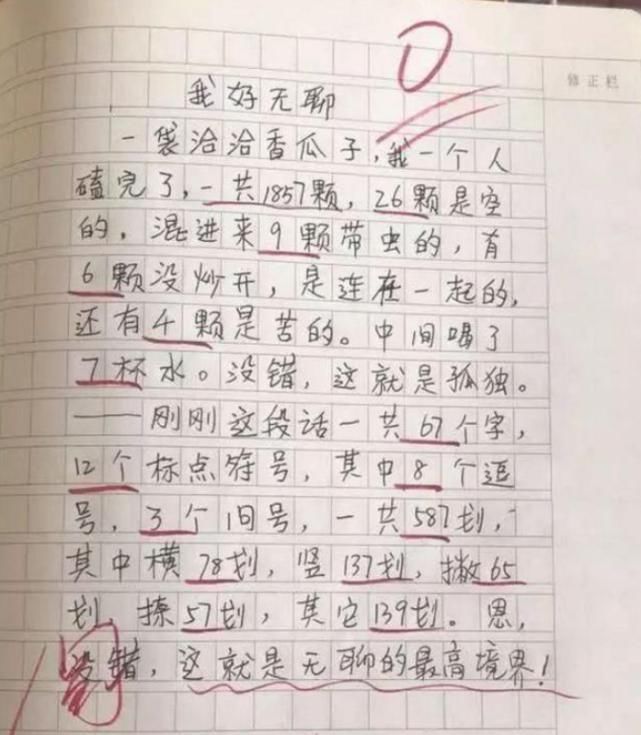 修正栏
0
我好无聊
一袋洽洽香瓜子,我一个人
磕完了,一共1857颗,26颗是空
的,混进来9颗带虫的,有
6颗没炒开,是连在一起的,
还有4颗是苦的。中间喝了
7杯水。没错,这就是孤独。
——刚刚这段话一共67个字,
12个标点符号,其中8个逗
号,3个问号,一共587划,
其中横78划,竖137划,撇65
划,捺57划,其它139划。恩,
没错,这就是无聊的最高境界!